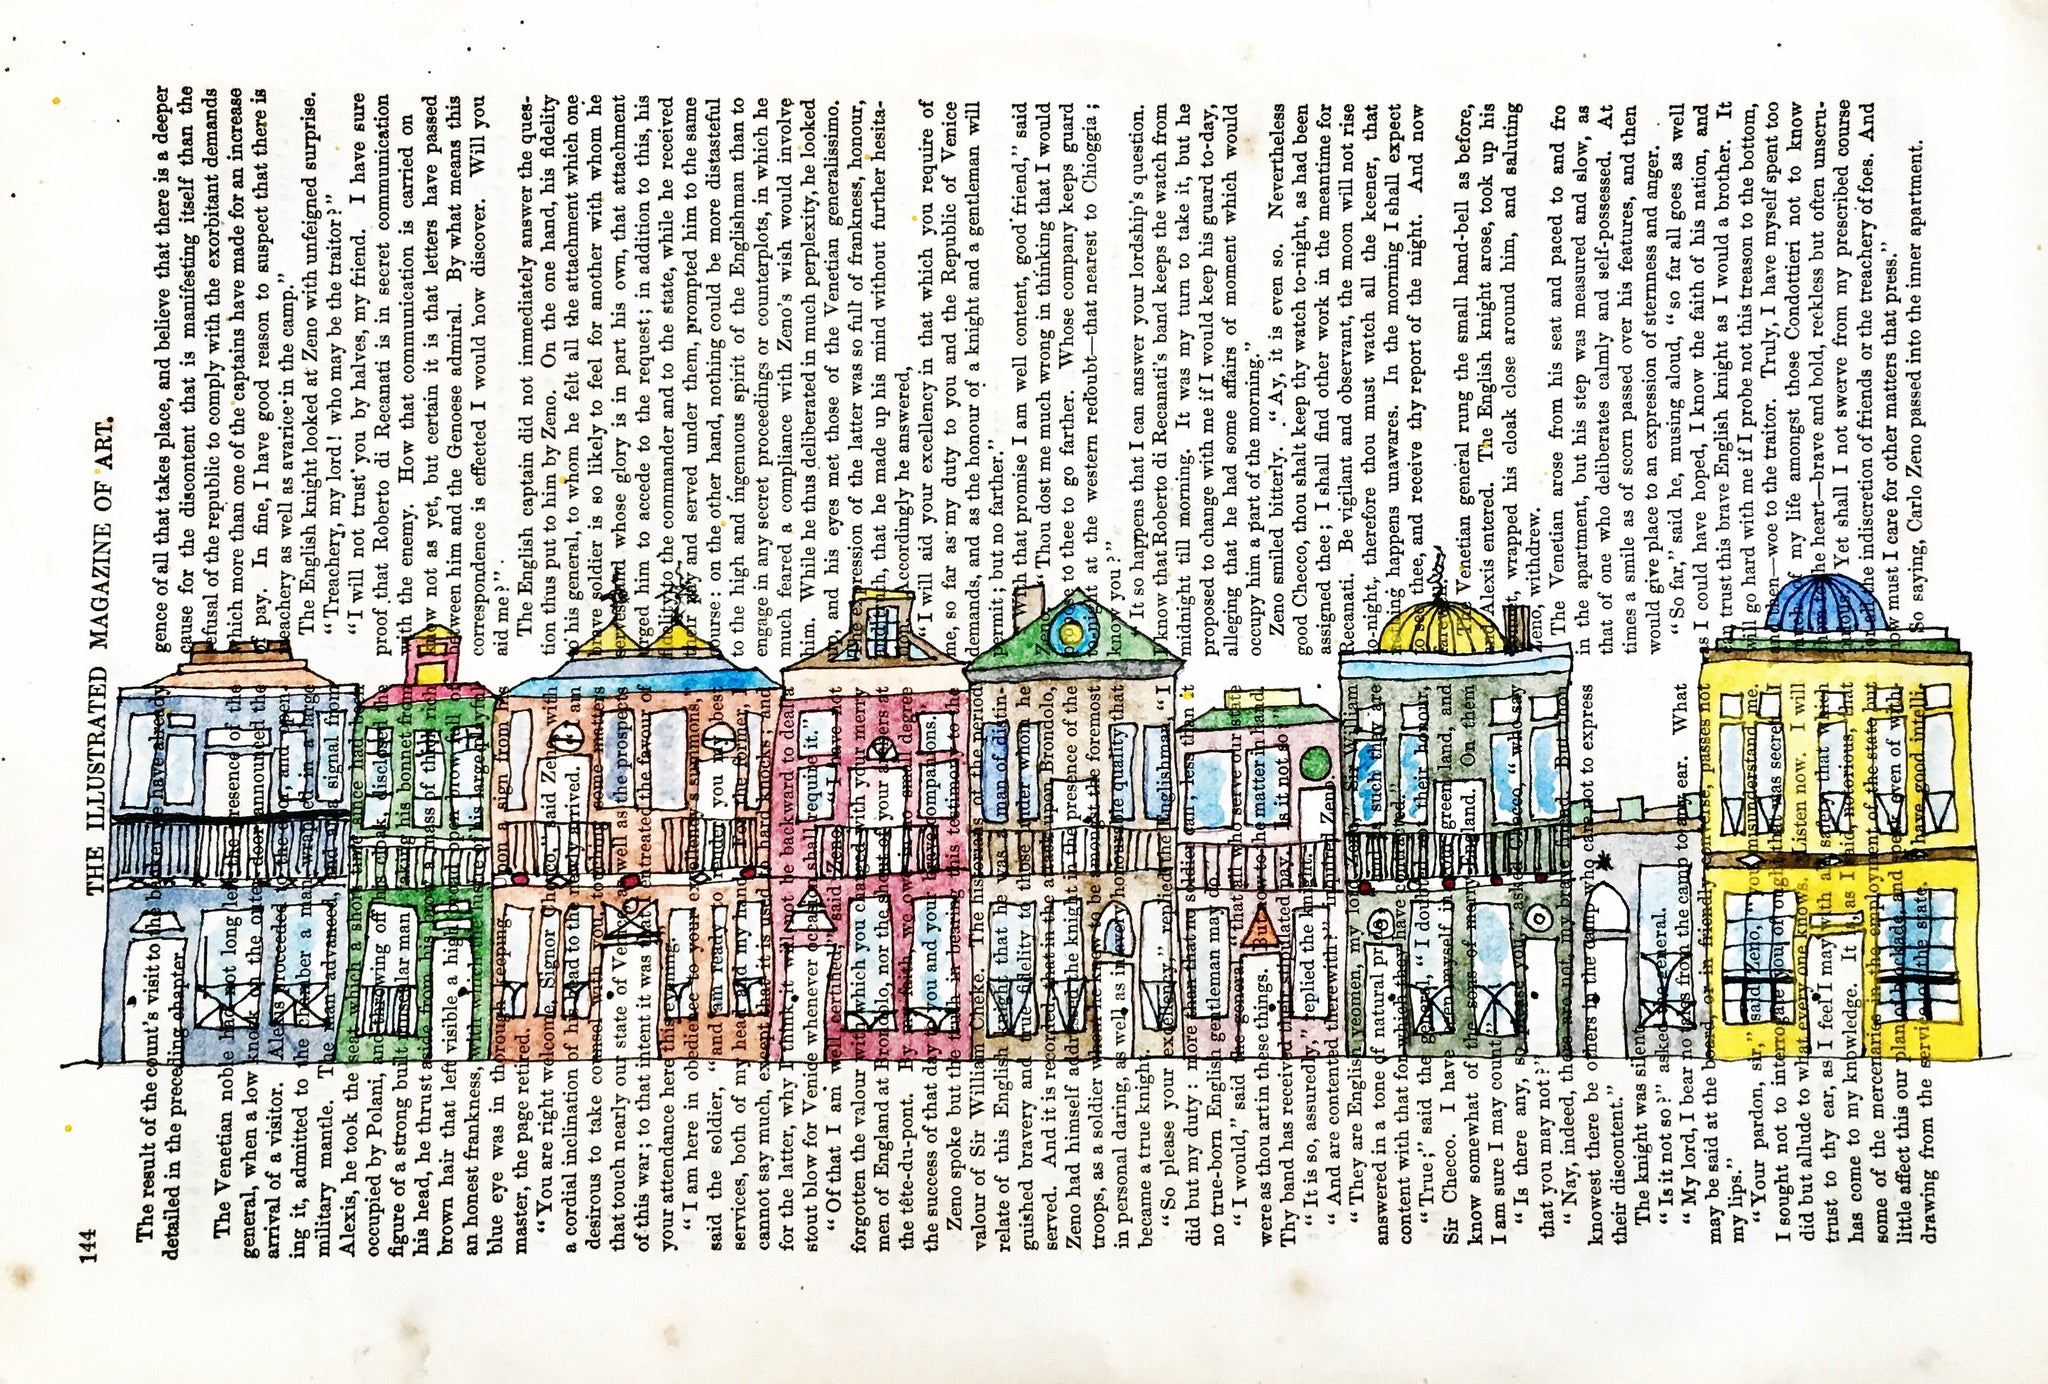 144
THE ILLUSTRATED MAGAZINE OF ART.
The result of the count's visit to the banker we have already
detailed in the preceding chapter.
The Venetian noble had not long left the presence of the
general, when a low knock on the outer door announced the
arrival of a visitor. Alexis proceeded to the door, and open-
ing it, admitted to the chamber a man wrapped in a large
military mantle. The man advanced, and at a signal from
Alexis, he took the seat which a short time since had been
occupied by Polani, and throwing off his cloak, disclosed the
figure of a strong built muscular man taking his bonnet from
his head, he thrust aside from his brow a mass of thick rich
brown hair that left visible a high broad open brow full of
an honest frankness, with which the of his large playful
blue eye was in thorough keeping. Upon a sign from his
master, the page retired.
"You are right welcome, Signor Checco," said Zeno, with
a cordial inclination of his head to the newly arrived. "I am
desirous to take counsel with you, touching some matters
that touch nearly our state of Venice, as well as the prospects
of this war; to that intent it was that I entreated the favour of
your attendance here this evening."
"I am here in obedience to your excellency's summons,"
said the soldier, "and am ready to render you my best
services, both of my head and my hand. For the former, I
cannot say much, except that it is used to hard knocks; and
for the latter, why I think it will not be backward to deal a
stout blow for Venice whenever occasion shall require it."
"Of that I am well certified," said Zeno. "I have not
forgotten the valour with which you charged with your merry
men of England at Brondolo, nor the shout of your archers at
the tête-du-pont. By my faith, we owe in no small degree
the success of that day to you and your brave companions.
Zeno spoke but the truth in bearing this testimony to the
valour of Sir William Cheke. The historians of the period
relate of this English knight that he was a man of distin-
guished bravery and true fidelity to those under whom he
served. And it is recorded, that in the attack upon Brondolo,
Zeno had himself addressed the knight in the presence of the
troops, as a soldier whom he knew to be amongst the foremost
in personal daring, as well as in every honourable quality that
became a true knight.
"So please your excellency," replied the Englishman, "I
did but my duty: more than that no soldier can, less than it
no true-born English gentleman may do."
"I would," said the general, "that all who serve our state
were as thou art in these things. But now to the matter in hand.
Thy band has received their stipulated pay. Is it not so?"
"It is so, assuredly," replied the knight.
"And are contented therewith?" inquired Zeno.
"They are English yeomen, my lord Zeno," Sir William
answered in a tone of natural pride, "and such they are
content with that for which they have contracted."
"True;" said the general, "I doubt not their honour,
Sir Checco. I have been myself in your green land, and
know somewhat of the sons of merry England. On them
I am sure I may count."
"Is there any, so please you," asked Checco, "who say
that you may not?"
"Nay, indeed, these are not, my brave friend. But thou
knowest there be others in the camp who care not to express
their discontent."
The knight was silent.
"Is it not so?" asked the general.
"My lord, I bear no tales from the camp to any ear. What
may be said at the board, or in friendly converse, passes not
my lips."
"Your pardon, sir," said Zeno, "you misunderstand me.
I sought not to interrogate you of ought that was secret. I
did but allude to what every one knows. Listen now. I will
trust to thy ear, as I feel I may with all safety, that which
has come to my knowledge. It is, as I said, notorious, that
some of the mercenaries in the employment of the state but
little affect this our plan of blockade, and speak even of with-
drawing from the service of the state. I have good intelli-
gence of all that takes place, and believe that there is a deeper
cause for the discontent that is manifesting itself than the
refusal of the republic to comply with the exorbitant demands
which more than one of the captains have made for an increase
of pay. In fine, I have good reason to suspect that there is
treachery as well as avarice in the camp."
The English knight looked at Zeno with unfeigned surprise.
"Treachery, my lord! who may be the traitor?"
"I will not trust you by halves, my friend. I have sure
proof that Roberto di Recanati is in secret communication
with the enemy. How that communication is carried on
know not as yet, but certain it is that letters have passed
between him and the Genoese admiral. By what means this
correspondence is effected I would now discover. Will you
aid me?"
The English captain did not immediately answer the ques-
tion thus put to him by Zeno. On the one hand, his fidelity
to his general, to whom he felt all the attachment which one
brave soldier is so likely to feel for another with whom he
served, and whose glory is in part his own, that attachment
urged him to accede to the request; in addition to this, his
fidelity to the commander and to the state, while he received
their pay and served under them, prompted him to the same
course: on the other hand, nothing could be more distasteful
to the high and ingenuous spirit of the Englishman than to
engage in any secret proceedings or counterplots, in which he
much feared a compliance with Zeno's wish would involve
him. While he thus deliberated in much perplexity, he looked
up, and his eyes met those of the Venetian generalissimo.
The expression of the latter was so full of frankness, honour,
and truth, that he made up his mind without further hesita-
tion. Accordingly he answered,
"I will aid your excellency in that which you require of
me, so far as my duty to you and the Republic of Venice
demands, and as the honour of a knight and a gentleman will
permit; but no farther."
"With that promise I am well content, good friend," said
Zeno. "Thou dost me much wrong in thinking that I would
propose to thee to go farther. Whose company keeps guard
to-night at the western redoubt—that nearest to Chioggia;
know you?"
"It so happens that I can answer your lordship's question.
I know that Roberto di Recanati's band keeps the watch from
midnight till morning. It was my turn to take it, but he
proposed to change with me if I would keep his guard to-day,
alleging that he had some affairs of moment which would
occupy him a part of the morning."
Zeno smiled bitterly. "Ay, it is even so. Nevertheless
good Checco, thou shalt keep thy watch to-night, as had been
assigned thee; I shall find other work in the meantime for
Recanati. Be vigilant and observant, the moon will not rise
to-night, therefore thou must watch all the keener, that
nothing happens unawares. In the morning I shall expect
to see thee, and receive thy report of the night. And now
farewell."
The Venetian general rung the small hand-bell as before,
and Alexis entered. The English knight arose, took up his
bonnet, wrapped his cloak close around him, and saluting
Zeno, withdrew.
The Venetian arose from his seat and paced to and fro
in the apartment, but his step was measured and slow, as
that of one who deliberates calmly and self-possessed. At
times a smile as of scorn passed over his features, and then
would give place to an expression of sternness and anger.
"So far," said he, musing aloud, "so far all goes as well
as I could have hoped, I know the faith of his nation, and
can trust this brave English knight as I would a brother. It
will go hard with me if I probe not this treason to the bottom,
and then—woe to the traitor. Truly, I have myself spent too
much of my life amongst those Condottieri not to know
the heart—brave and bold, reckless but often unscru-
pulous. Yet shall I not swerve from my prescribed course
for all the indiscretion of friends or the treachery of foes. And
now must I care for other matters that press."
So saying, Carlo Zeno passed into the inner apartment.